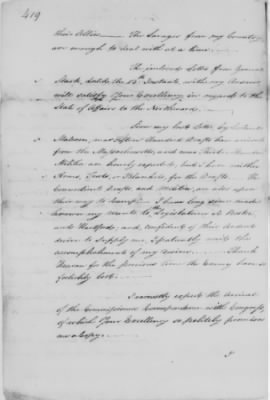 419
this Affair — The Savages from my Country
are enough to deal with at a time.
The inclosed Letter from General
Stark, dated the 15th Instant, with my Answer
will satisfy Your Excellency in regard to the
State of Affairs to the Northward.
Since my last Letter by
Fifteen Hundred Drafts have arrived
from the Massachusetts, and
Militia are hourly expected, but I have neither
Arms, Tents, or Blankets for the Drafts. The
Connecticut Drafts and Militia, are also upon
their way to Camp. I have long since made
known my wants to Legislatures at Boston
and Hartford; and, confident of their ardent
desire to supply me, I patiently wait the
accomplishment of my
Heaven for the precious time the Enemy have so
foolishly lost.
I earnestly expect the Arrival
of the Commissioners Correspondence with Congress,
of which Your Excellency so politely promises
me a Copy.